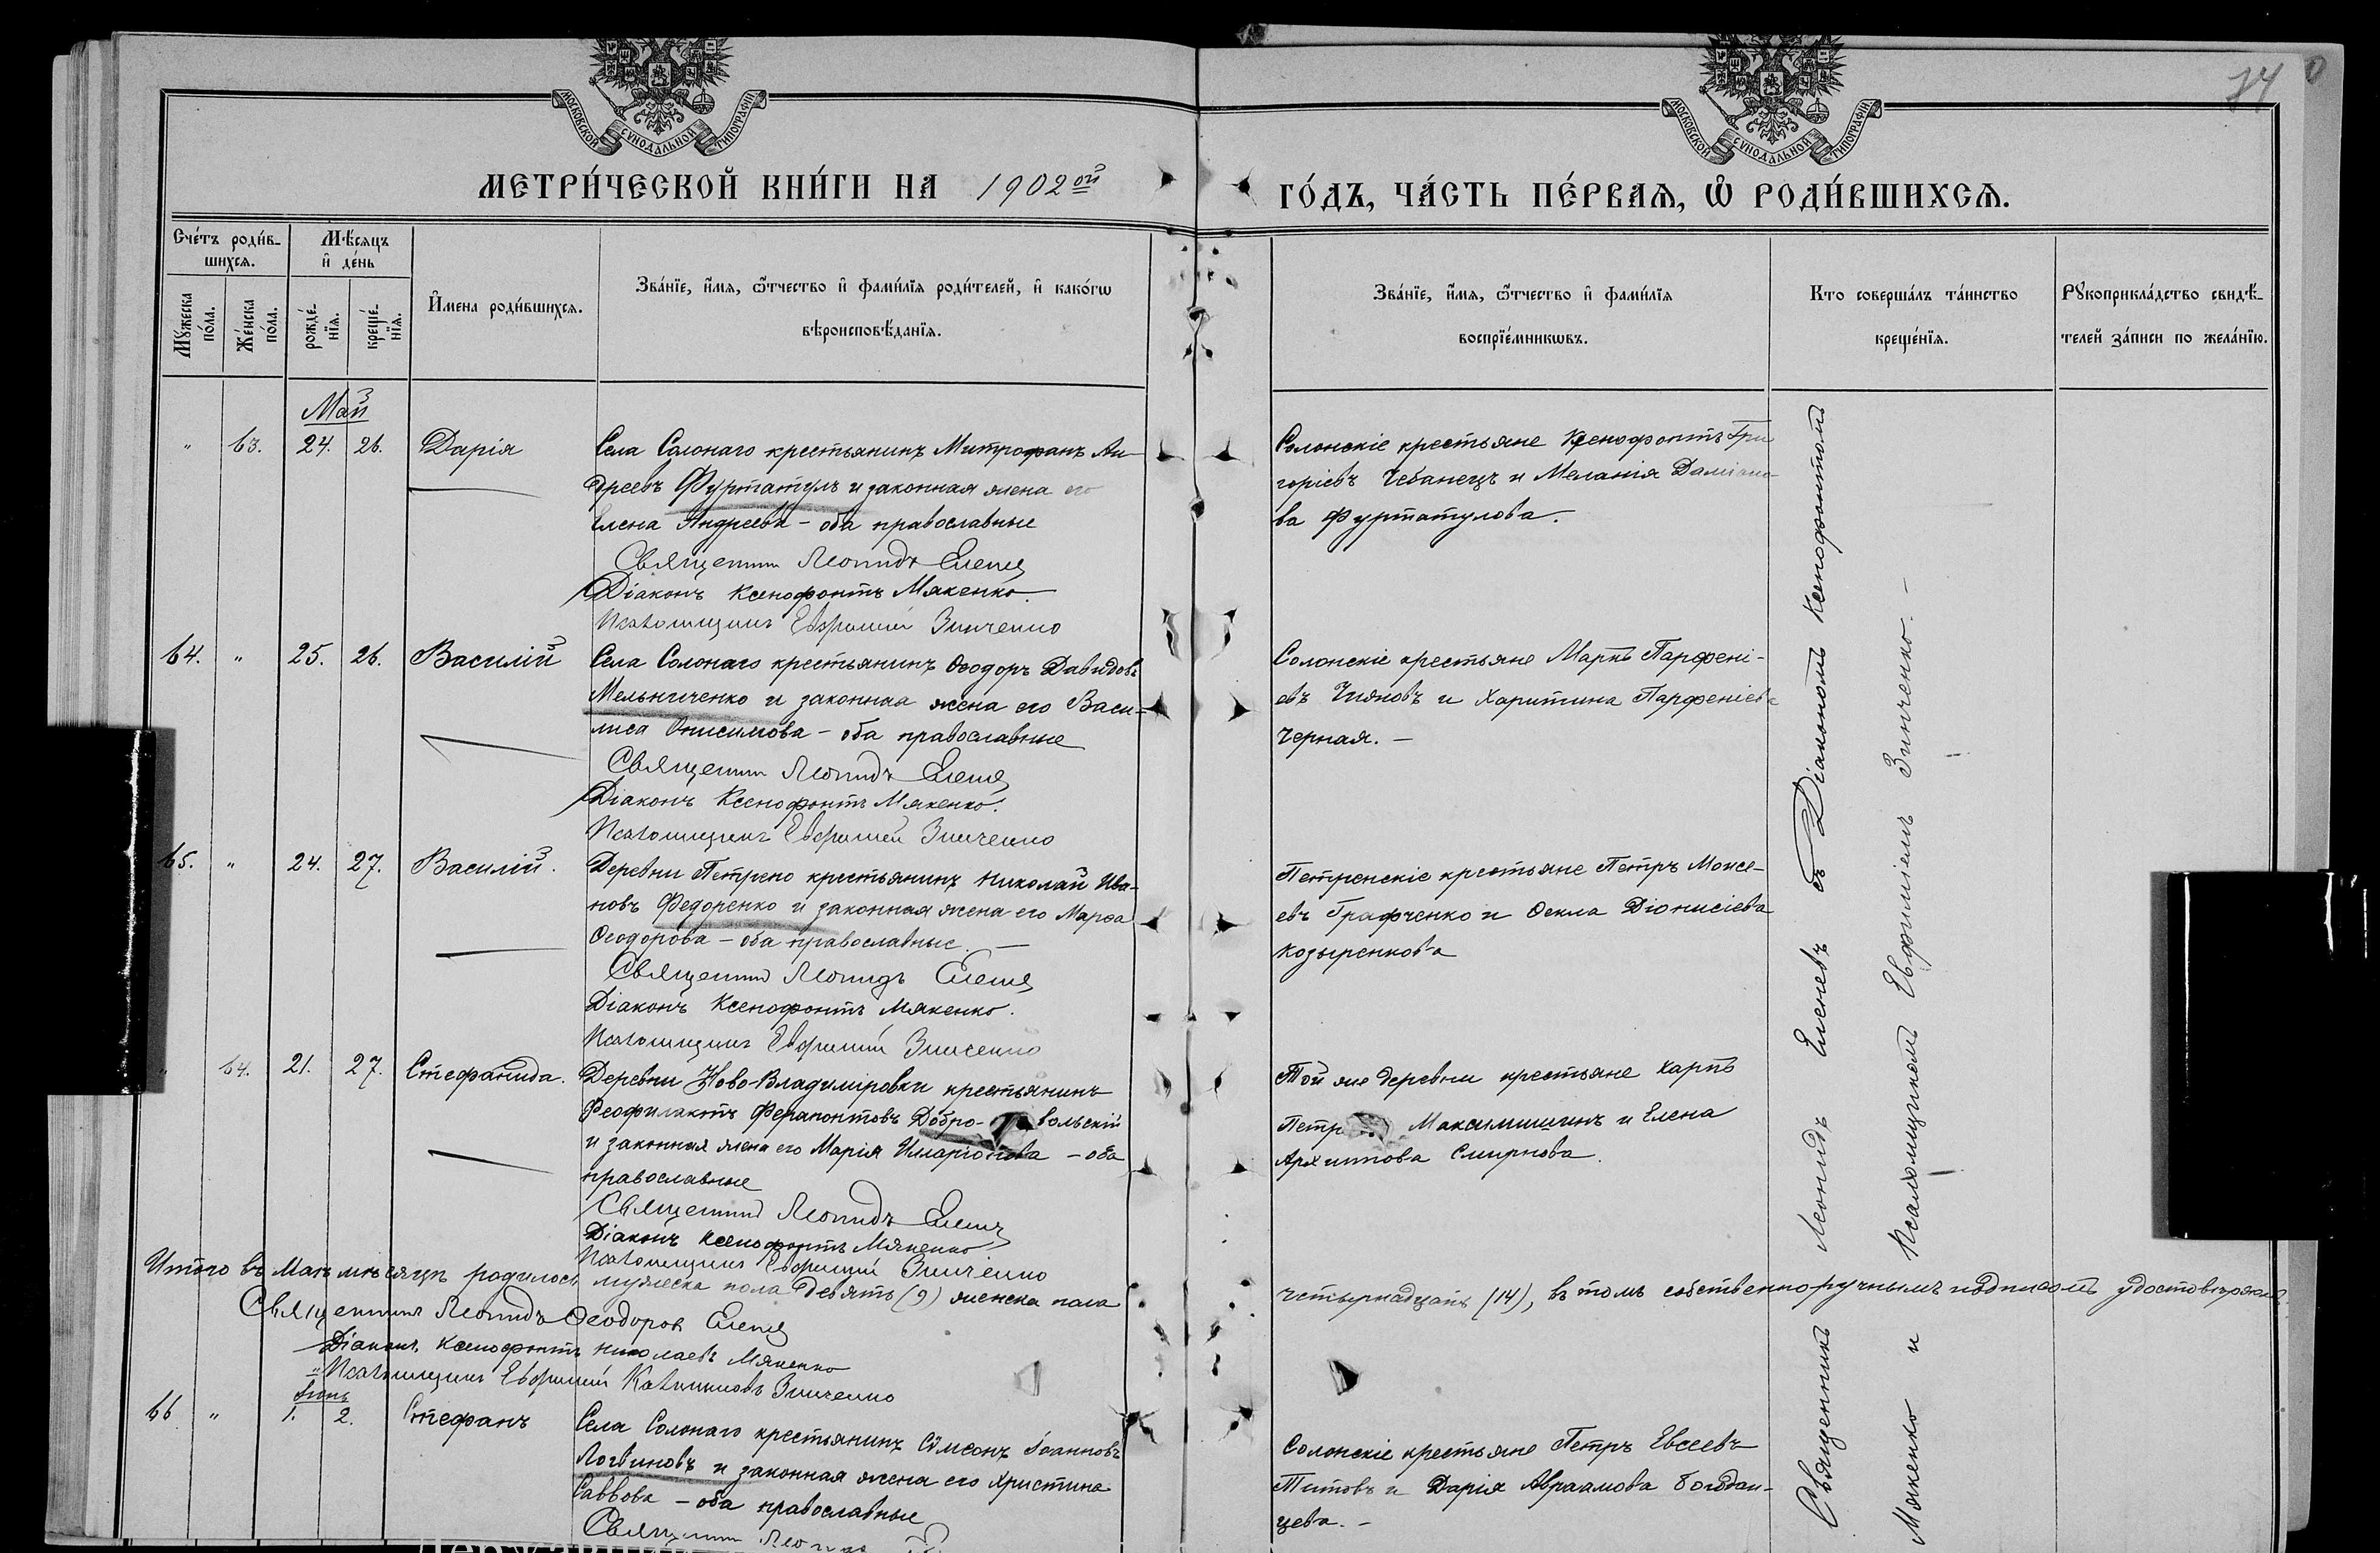 74
МОСКОВСКОЙ СУНОДАЛЬНОЙ ТИПОГРАФІИ
МОСКОВСКОЙ СУНОДАЛЬНОЙ ТИПОГРАФІИ
МЕТРИ́ЧЕСКОЙ КНИ́ГИ НА 1902ой
ГО́ДЪ, ЧА́СТЬ ПЕ́РВАѦ, Ѡ҆ РОДИ́ВШИХСѦ.
Сче́тъ роди́в-
шихсѧ.
Мѣ́сѧцъ
и҆ де́нь
Мꙋжеска
по́ла.
Же́нска
по́ла.
рожде́-
нїѧ.
креще́-
нїѧ.
И҆мена роди́вшихсѧ.
Зва́нїе, и҆́мѧ, ѻ҆́тчество и҆ фами́лїѧ роди́телей, и҆ како́гѡ
вѣроисповѣ́данїѧ.
Зва́нїе, и҆́мѧ, ѻ҆́тчество и҆ фами́лїѧ
воспрїе́мникѡвъ.
Кто соверша́лъ та́инство
креще́нїѧ.
Рꙋкоприкла́дство свидѣ́-
телей за́писи по жела́нїю.
Май
" 63. 24. 26. Дарія
Села Солонаго крестьянинъ Митрофанъ Ан-
дреевъ Фуртатулъ и законная жена его
Елена Андреева – оба православные
Священник Леонидъ Еленев
Діаконъ Ксенофонтъ Мякенко.
Псаломщикъ Евфимій Зинченко
Солонскіе крестьяне Ксенофонтъ Гри
горіевъ Чебанецъ и Меланія Даміано
ва Фуртатулова.
64. " 25. 26. Василій
Села Солонаго крестьянинъ Ѳеодоръ Давидовъ
Мельниченко и законная жена его Васи-
лиса Онисимова – оба православные
Священник Леонидъ Еленев
Діаконъ Ксенофонтъ Мякенко.
Псаломщикъ Евфимій Зинченко
Солонскіе крестьяне Маркъ Парфені-
евъ Чияновъ и Харитина Парфеніева
Черная. –
65. " 24. 27. Василій.
Деревни Петрено крестьянинъ Николай Ива-
новъ Федоренко и законная жена его Марѳа
Ѳеодорова – оба православные. –
Священник Леонидъ Еленев
Діаконъ Ксенофонтъ Мякенко.
Псаломщикъ Евфимій Зинченко
Петренскіе крестьяне Петръ Моисе-
евъ Графченко и Ѳекла Діонисіева
Козыренкова
" 64. 21. 27. Стефанида.
Деревни Ново-Владиміровки крестьянинъ
Феофилактъ Ферапонтовъ Добро- вольскій
и законная жена его Марія Иларіонова – оба
православные
Священник Леонидъ Еленев
Діаконъ Ксенофонтъ Мякенко
Псаломщикъ Евфимій Зинченко
Той же деревни крестьяне Карпъ
Петр Максимишинъ и Елена
Архиппова Смирнова.
Итого въ Маѣ мѣсяцѣ родилось мужеска пола девять (9) женска пола
четырнадцать (14), въ томъ собственноручнымъ подписомъ удостовѣряемъ.
Священник Леонидъ Ѳеодоров Еленев
Діаконъ Ксенофонтъ Николаевъ Мякенко
Псаломщикъ Евфимій Зинченко
Іюнь
66 " 1. 2. Стефанъ
Села Солонаго крестьянинъ Сѵмеонъ Іоанновъ
Логвиновъ и законная жена его Христина
Саввова – оба православные
Священник Леонид
Солонскіе крестьяне Петръ Евсеевъ
Титовъ и Дарія Авраамова Богдан-
цева. –
Священникъ Леонидъ Еленевъ съ Діакономъ Ксенофонтомъ
Мякенко и Псаломщикомъ Евфиміемъ Зинченко. –